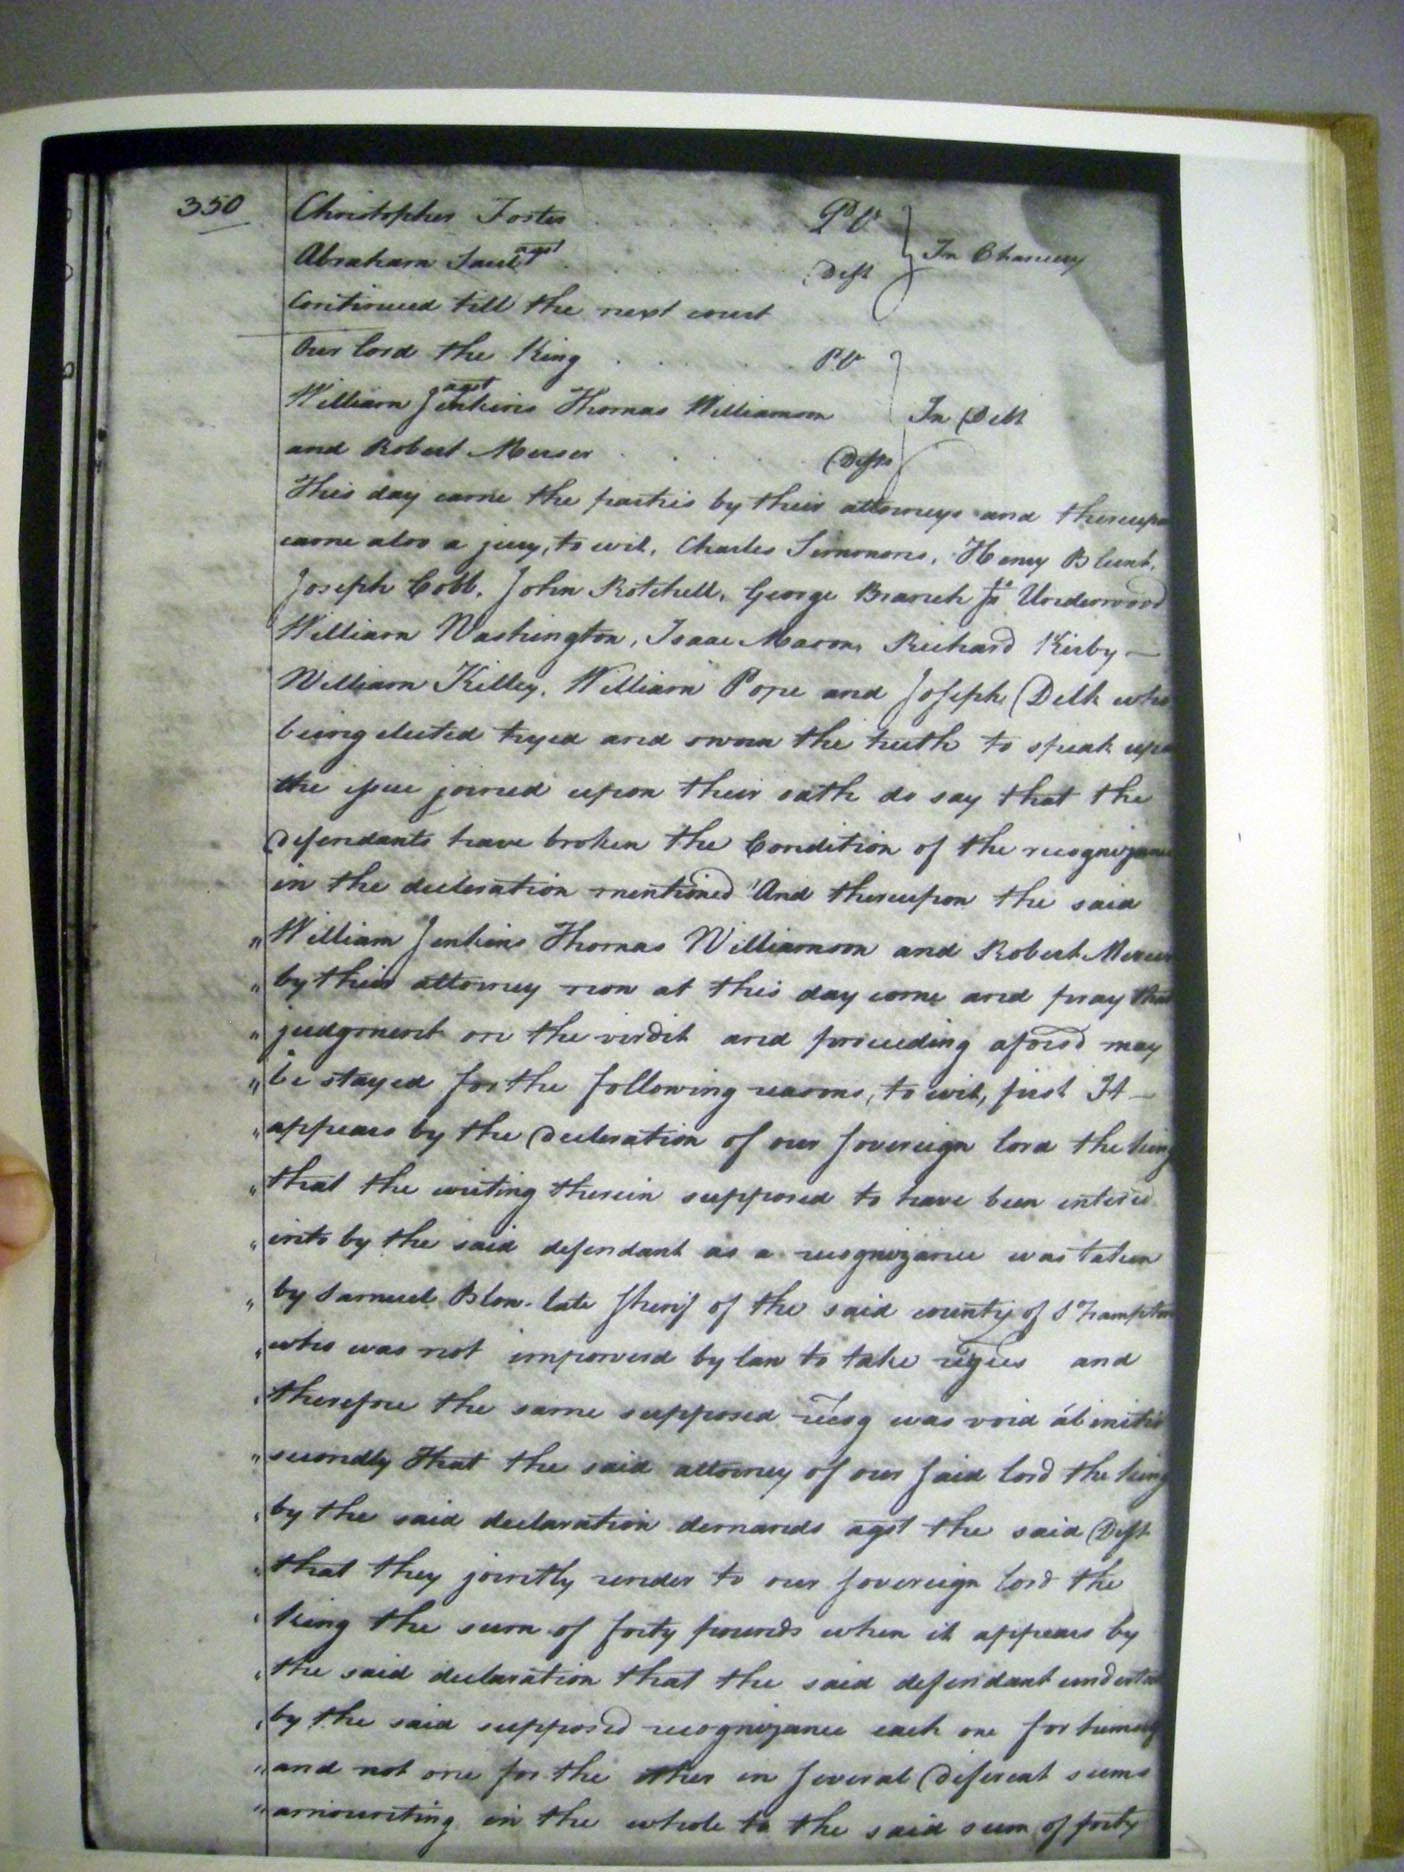 350
Christopher Foster . . . . Plt
agst
Abraham Saul . . . . Deft } In Chancery
Continued till the next court
Our lord the King . . . . Plt
agst
William Jenkins Thomas Williamson } In Debt
and Robert Merser . . . . Defts
This day came the parties by their attorneys and thereupon
came also a jury, to wit, Charles Simmons, Henry Blunt,
Joseph Cobb, John Rotchell, George Branch Jn Underwood
William Washington, Isaac Mason, Richard Kirby —
William Killey, William Pope and Joseph Delk who
being elected tryed and sworn the truth to speak upon
the issue joined upon their oath do say that the
Defendants have broken the Condition of the recognizance
in the decleration mentioned And thereupon the said
" William Jenkins Thomas Williamson and Robert Mercer
" by their attorney now at this day come and pray that
" judgment on the virdit and proceeding aforesd may
" be stayed for the following reasons, to wit, first It —
" appears by the Decleration of our sovereign lord the king
" that the writing therein supposed to have been entered
" into by the said defendant as a recognizance was taken
" by Samuel Blow late sherif of the said county of S'hampton
" who was not impowerd by law to take and
" therefore the same supposed recog was void ab initio
" secondly That the said attorney of our said lord the king
" by the said declaration demands agst the said Deft
" that they jointly render to our sovereign lord the
" King the sum of forty pounds when it appears by
" the said declaration that the said defendant
" by the said supposed recognizance each one for himself
" and not one for the other in several Diferent sums
" amounting in the whole to the said sum of forty